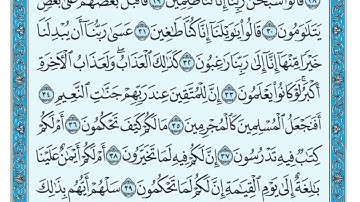 قَالُوا۟ سُبْحَٰنَ رَبِّنَآ إِنَّا كُنَّا ظَٰلِمِينَ ٢٩ فَأَقْبَلَ بَعْضُهُمْ عَلَىٰ بَعْضٍ
يَتَلَٰوَمُونَ ٣٠ قَالُوا۟ يَٰوَيْلَنَآ إِنَّا كُنَّا طَٰغِينَ ٣١ عَسَىٰ رَبُّنَآ أَن يُبْدِلَنَا
خَيْرًا مِّنْهَآ إِنَّآ إِلَىٰ رَبِّنَا رَٰغِبُونَ ٣٢ كَذَٰلِكَ ٱلْعَذَابُ وَلَعَذَابُ ٱلْـَٔاخِرَةِ
أَكْبَرُ لَوْ كَانُوا۟ يَعْلَمُونَ ٣٣ إِنَّ لِلْمُتَّقِينَ عِندَ رَبِّهِمْ جَنَّٰتِ ٱلنَّعِيمِ ٣٤
أَفَنَجْعَلُ ٱلْمُسْلِمِينَ كَٱلْمُجْرِمِينَ ٣٥ مَا لَكُمْ كَيْفَ تَحْكُمُونَ ٣٦ أَمْ لَكُمْ
كِتَٰبٌ فِيهِ تَدْرُسُونَ ٣٧ إِنَّ لَكُمْ فِيهِ لَمَا تَخَيَّرُونَ ٣٨ أَمْ لَكُمْ أَيْمَٰنٌ عَلَيْنَا
بَٰلِغَةٌ إِلَىٰ يَوْمِ ٱلْقِيَٰمَةِ إِنَّ لَكُمْ لَمَا تَحْكُمُونَ ٣٩ سَلْهُمْ أَيُّهُم بِذَٰلِكَ